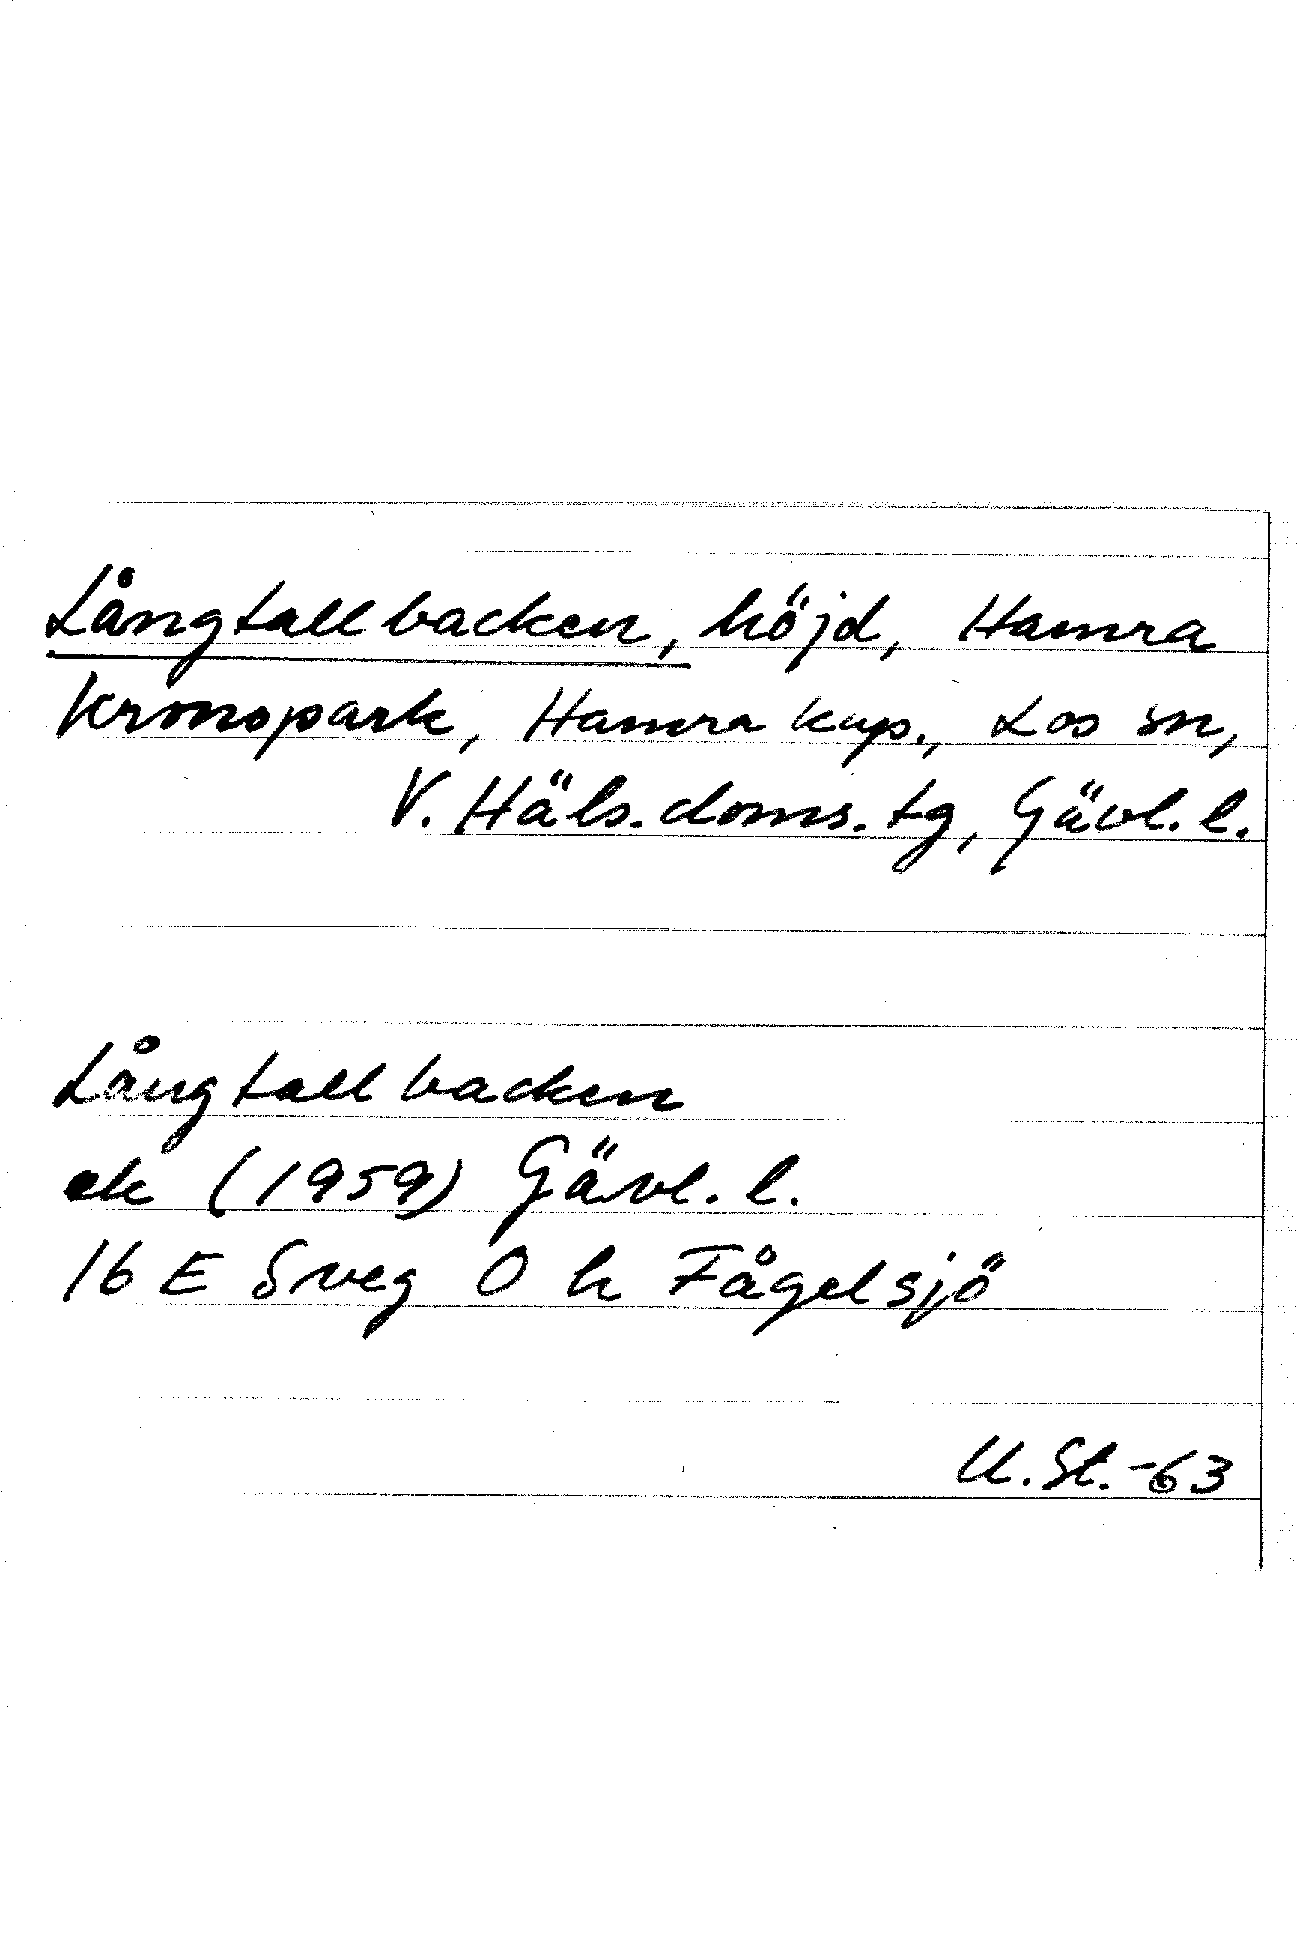 Långtallbacken, höjd, Hamra
kronopark, Hamra kap., Los sn,
V. Häls. doms. tg, Gävl. l.
Långtallbacken
ek (1959) Gävl. l.
16 E Sveg O h Fågelsjö
U. St. -63